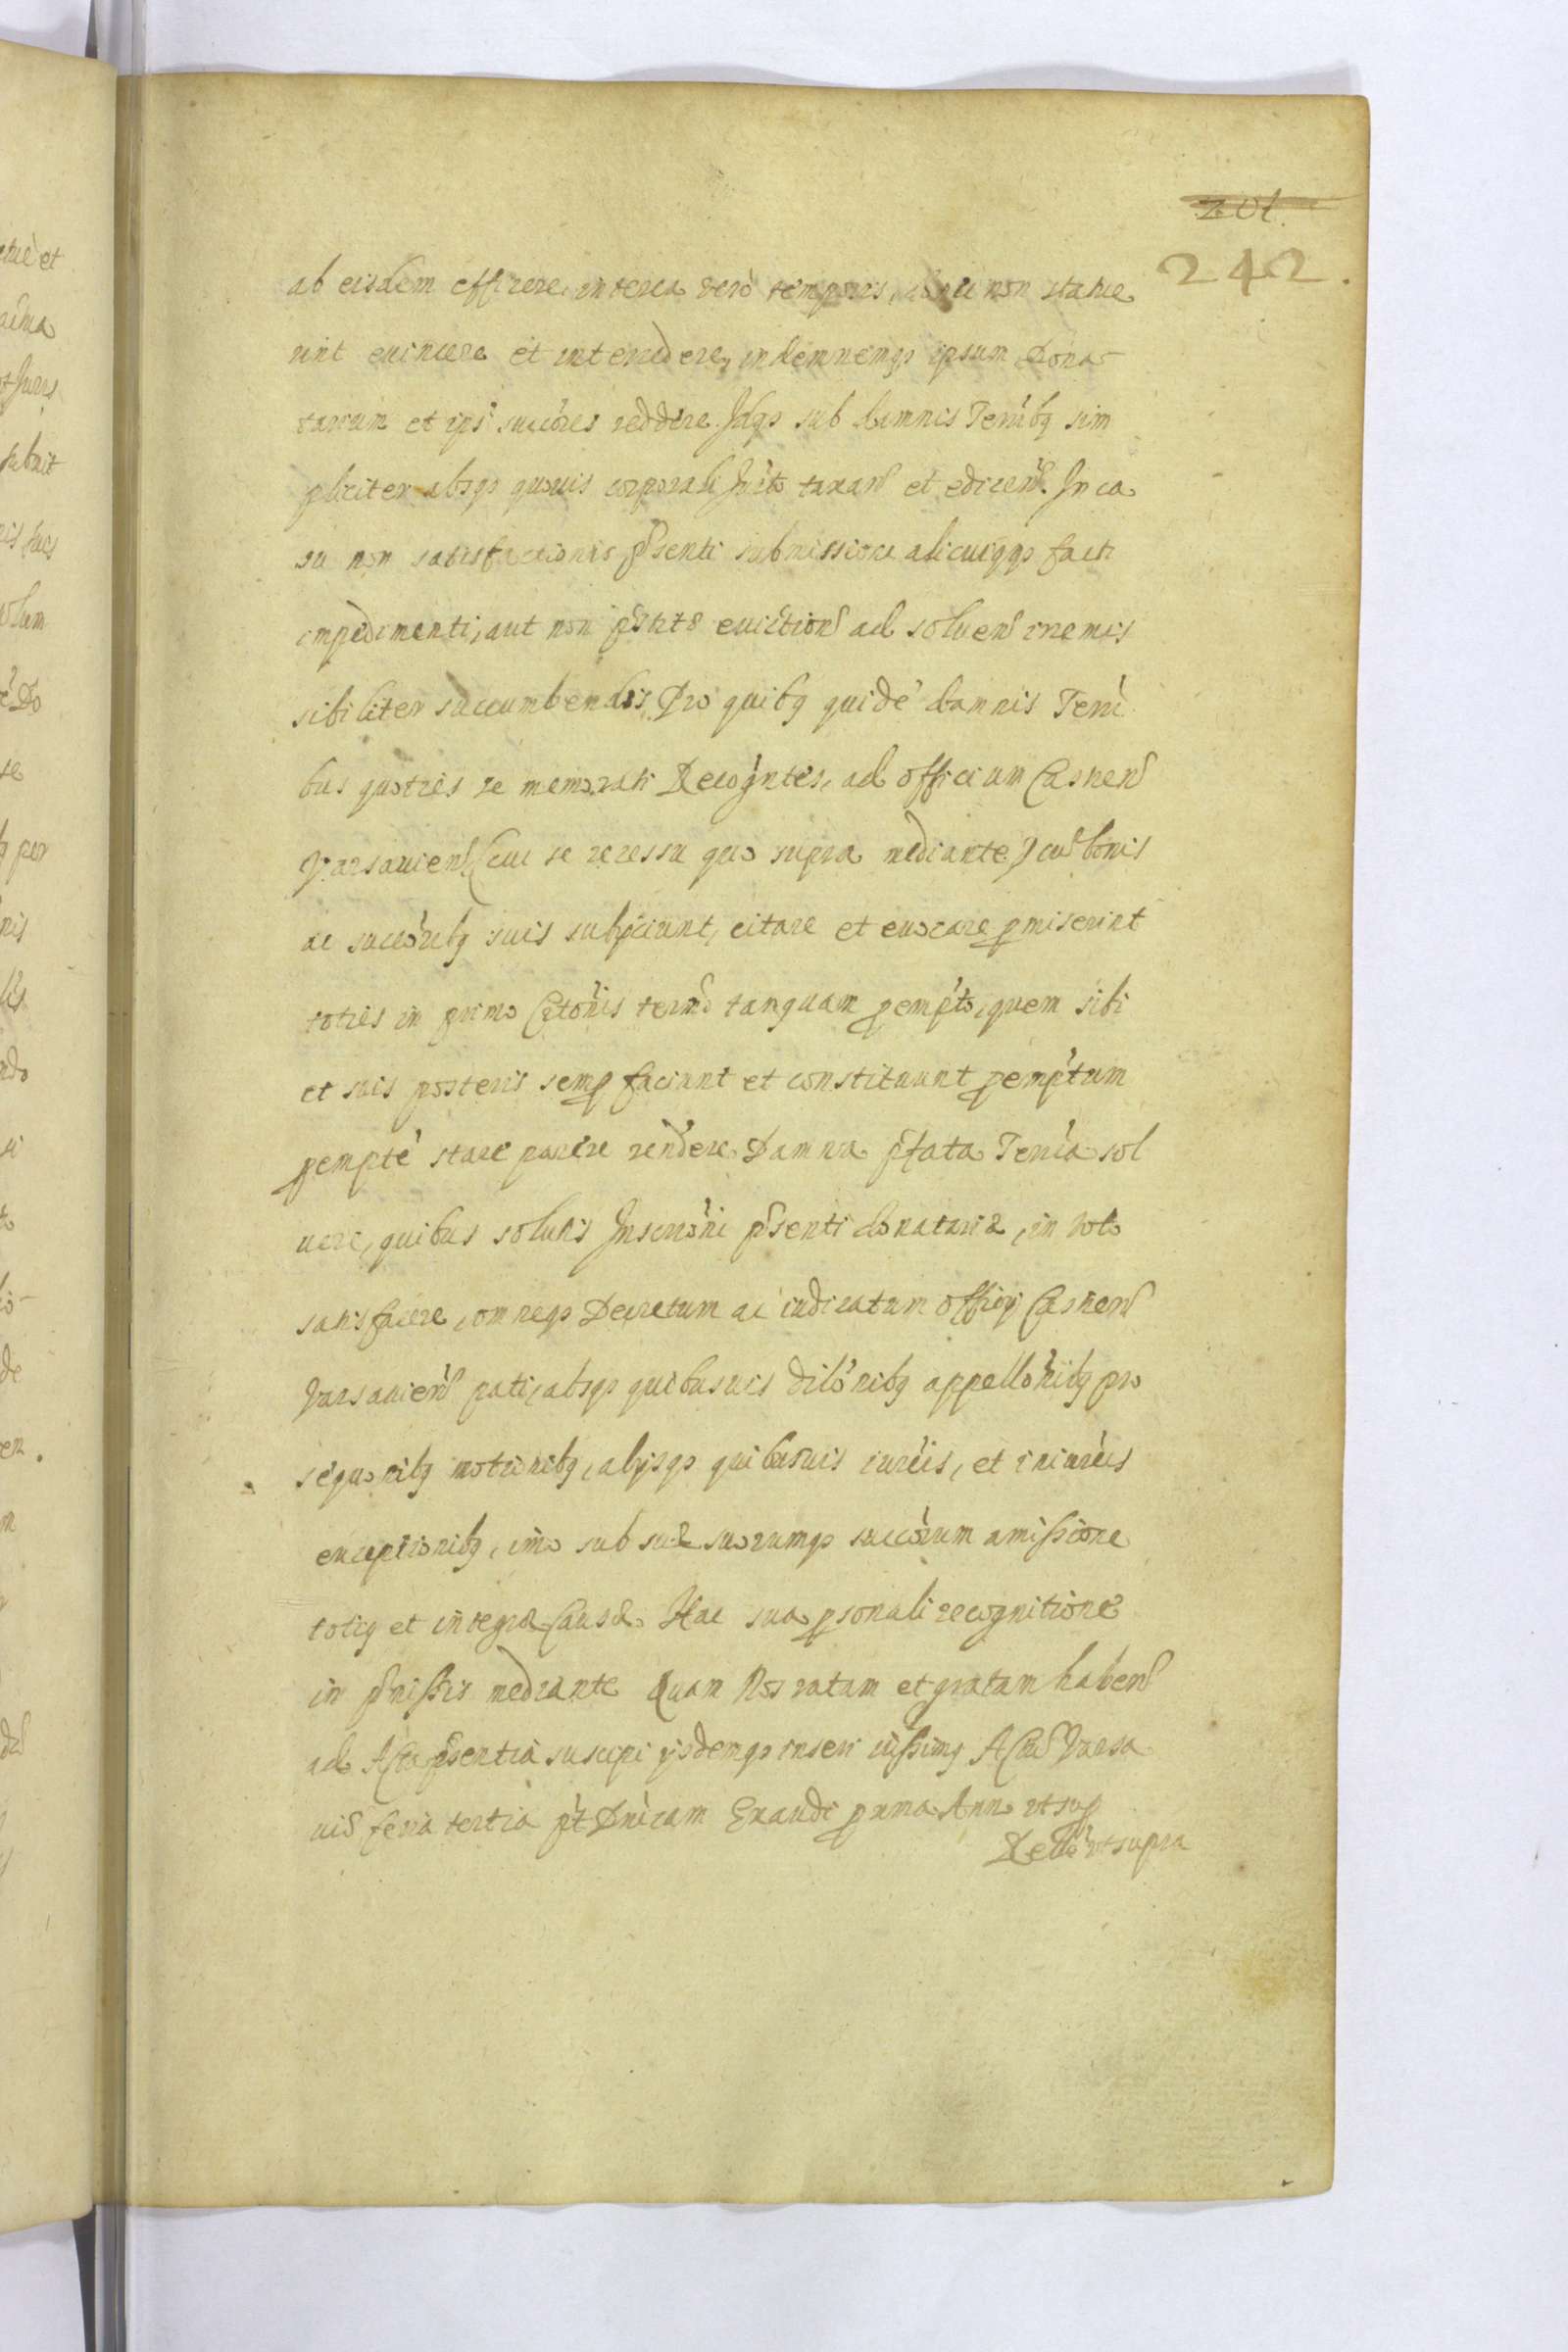 201.
242.
ab eisdem efficere, interea vero temporis, non statue
rint euincere et intercedere, indemnemqꝫ ipsum Dona-
tarium et ips' succ'ores reddere. Idqꝫ sub damnis Ter'ribꝫ sim
pliciter absqꝫ quouis corporali Jur'to taxan' et edicen'. In ca
su non satisfactionis p'senti submissione alicuiqꝫ facti
impedimenti, aut non euiction' ad soluen' irremis
sibiliter succumbendis. Pro quibꝫ quide' damnis Terri'
bus quoties re memorati Recogn'tes, ad officium Casnen'
Varsauien' (cui se recessu quo supra mediante) cu' bonis
ac succ'oribꝫ suis subijciunt, citare et euocare p'miserint
toties in primo C'to'nis termi' tanquam pemp'to, quem sibi
et suis posteris semp faciunt et constituunt pemp'tum
pempte' stare parere re'ndere. Damna p'fata Terr'ia sol
uere, quibus solutis Inscrip'oni p'senti donatariæ, in toto
satisfacere, omneqꝫ Decretum ac iudicatum officij Casnen'
Varsauien' pati, absqꝫ quibusuis dilo'nibꝫ appello'nibꝫ pro
sequo'nibꝫ motio'nibꝫ, alijsqꝫ quibusuis iur'is, et iniur'is
exceptionibꝫ, imo sub suæ suorumqꝫ succ'orum amissione
totiꝫ et integræ Causæ. Hac sua psonali recognitione
in p'missis mediante Quam Nos ratam et gratam haben'
ad Acta p'sentia suscipi ijsdemqꝫ inseri iussimꝫ Actu' Varsa
uiæ feria tertia p't D'nicam Exaudi prima Anno ut sup
ut supra